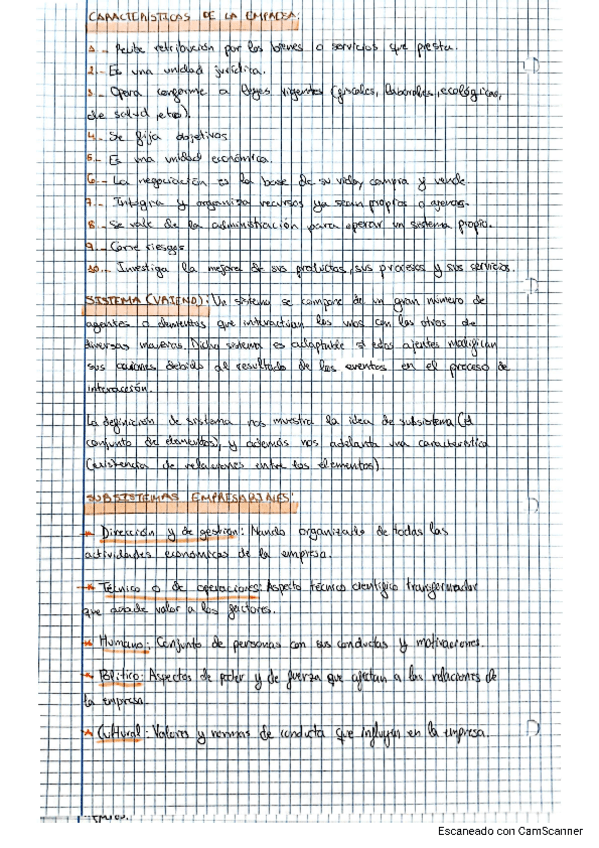 CARACTERISTICAS DE LA EMPRESA:
1.- Recibe retribución por los bienes o servicios que presta.
2.- Es una unidad jurídica.
3.- Opera conforme a leyes vigentes (fiscales, laborales, ecológicas,
de salud, etc).
4.- Se fija objetivos
5.- Es una unidad económica.
6.- La negociación es la base de su vida, compra y vende.
7.- Integra y organiza recursos ya sean propios o ajenos.
8.- Se vale de la administración para operar un sistema propio.
9.- Corre riesgos
10.- Investiga la mejora de sus productos, sus procesos y sus servicios.
SISTEMA (VALEND): Un sistema se compone de un gran número de
agentes o elementos que interactúan los unos con los otros de
diversas maneras. Dicho sistema es adaptable si estos agentes modifican
sus acciones debido al resultado de los eventos en el proceso de
interacción.
La definición de sistema nos muestra la idea de subsistema (el
conjunto de elementos), y además nos adelanta una característica
(existencia de relaciones entre los elementos)
SUBSISTEMAS EMPRESARIALES:
* Dirección y de gestión: Mando organizado de todas las
actividades económicas de la empresa.
* Técnico o de operaciones: Aspecto técnico científico transformador
que añade valor a los factores.
* Humano: Conjunto de personas con sus conductas y motivaciones.
* Político: Aspectos de poder y de fuerza que afectan a las relaciones de
la empresa.
* Cultural: Valores y normas de conducta que influyen en la empresa.
Escaneado con CamScanner